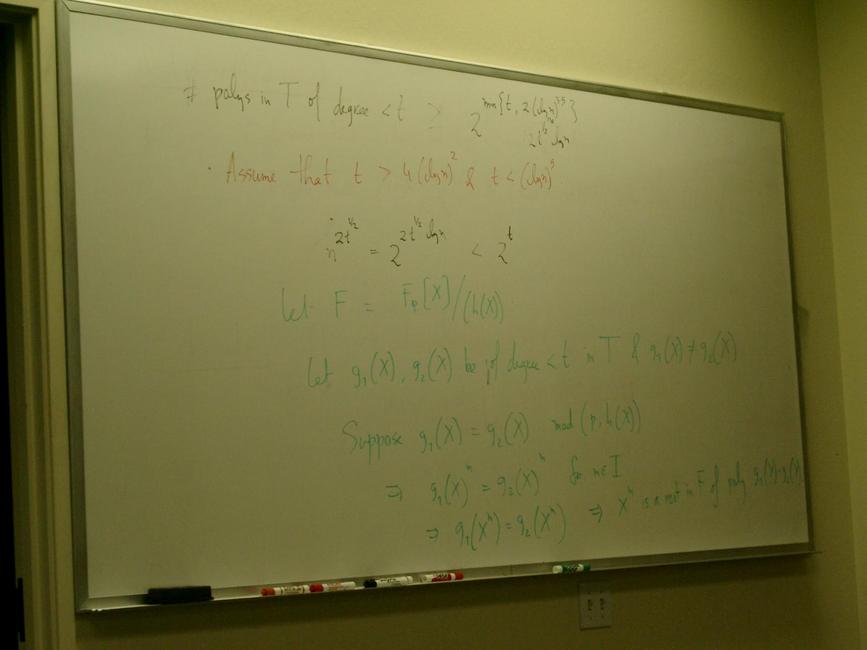 # polys in T of degree < t ≥ 2^{min{t, 2(clogn)^{1.5}}}
2t^{1/2} clogn
· Assume that t > 4(clogn)^2 & t < (clogn)^5
n^{2t^{1/2}} = 2^{2t^{1/2} clogn} < 2^t
Let F = F_p[X]/(h(X))
Let g_1(X), g_2(X) be of degree < t in T & g_1(X) ≠ g_2(X)
Suppose g_1(X) = g_2(X) mod (p, h(X))
⇒ g_1(X)^n = g_2(X)^n for n∈I
⇒ g_1(X^n) = g_2(X^n) ⇒ X^n is a root in F of poly g_1(Y)-g_2(Y)